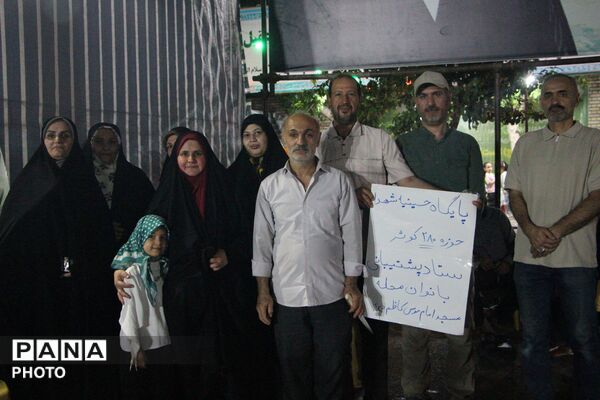 پایگاه حسینیه شهدا
حوزه ۲۸۰ کوثر
ستاد پشتیبانی
بانوان محله
مسجد امام موسی کاظم
PANA
PHOTO